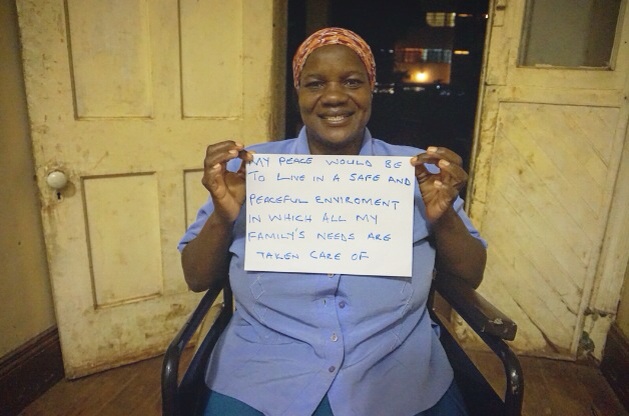 MY PEACE WOULD BE
TO LIVE IN A SAFE AND
PEACEFUL ENVIROMENT
IN WHICH ALL MY
FAMILY'S NEEDS ARE
TAKEN CARE OF